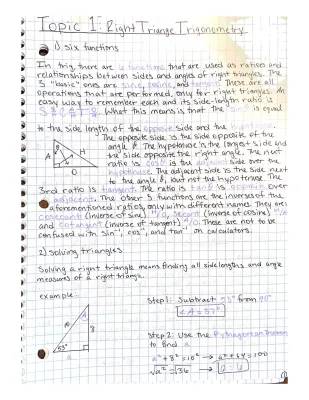 Topic 1: Right Triange Trigonometry
1) six functions
In trig, there are 6 functions that are used as ratios and
relationships between sides and angles of right triangles. The
3 "basic" ones are sine, cosine, and tangent. These are all
operations that are performed, only for right triangles. An
easy way to remember each and its side-length ratio is
What this means is that the is equal
to the side length of the opposite side and the
opposite side is the side opposite of the
angle θ. The hypotenuse is the longest side and
the side opposite the right angle. The next
ratio is cosθ is the adjacent side over the
hypotenuse. The adjacent side is the side next
to the angle θ, but not the hypotenuse. The
3rd ratio is tangent. The ratio is tanθ is opposite over
adjacent. The other 3 functions are the inverses of the
aforementioned ratios, only with different names. They are
cosecant (inverse of sine) H/O, secant (inverse of cosine) H/A
and cotangent (inverse of tangent) A/O. These are not to be
confused with sin⁻¹, cos⁻¹, and tan⁻¹ on calculators.
A
H
O
2) solving triangles
Solving a right triangle means finding all side lengths and angle
measures of a right triangle.
example:
10
A
8
53°
Step 1: Subtract 53° from 90°
∠A = 37°
Step 2: Use the Pythagorean Theorem
to find a
a² + 8² = 10² → a² + 64 = 100
√a² = √36 → a = 6